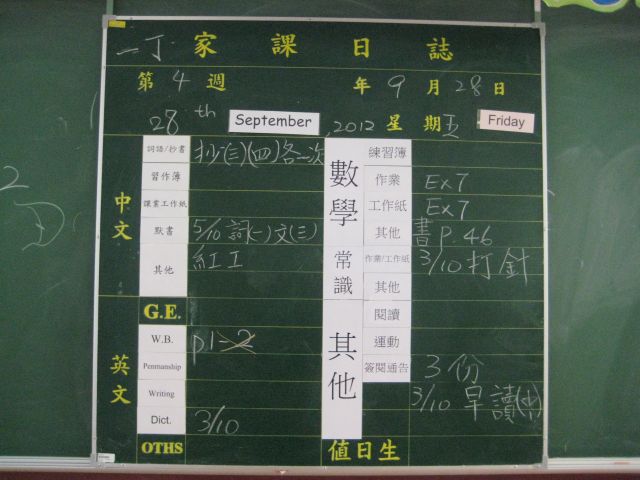 一丁 家課日誌
第 4 週 年 9 月 28 日
28th September, 2012 星期五 Friday
中文
詞語/抄書 抄(三)(四)各一次
習作簿
課業工作紙
默書 5/10 詞(一)文(三)
其他 紅工
G.E.
英文
W.B. p1-2
Penmanship
Writing
Dict. 3/10
OTHS
數學
練習簿
作業 Ex7
工作紙 Ex7
其他 書P.46
常識
作業/工作紙 3/10打針
其他
其他
閱讀
運動
簽閱通告 3份
3/10 早讀(中)
值日生